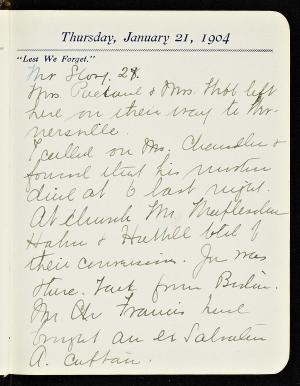 Thursday, January 21, 1904
"Lest We Forget."
Mr Story. 28.
Mrs. & Mrs. Webb left
here on their way to
nersville.
I called on Mr. Chandler &
found that his mother
died at 6 last night.
At church Mr.
Hahn & told of
their conversion. Jn was
there. Tact from Bedin.
Mr. Ch Francis here
bought an ex Salvation
A. captain.